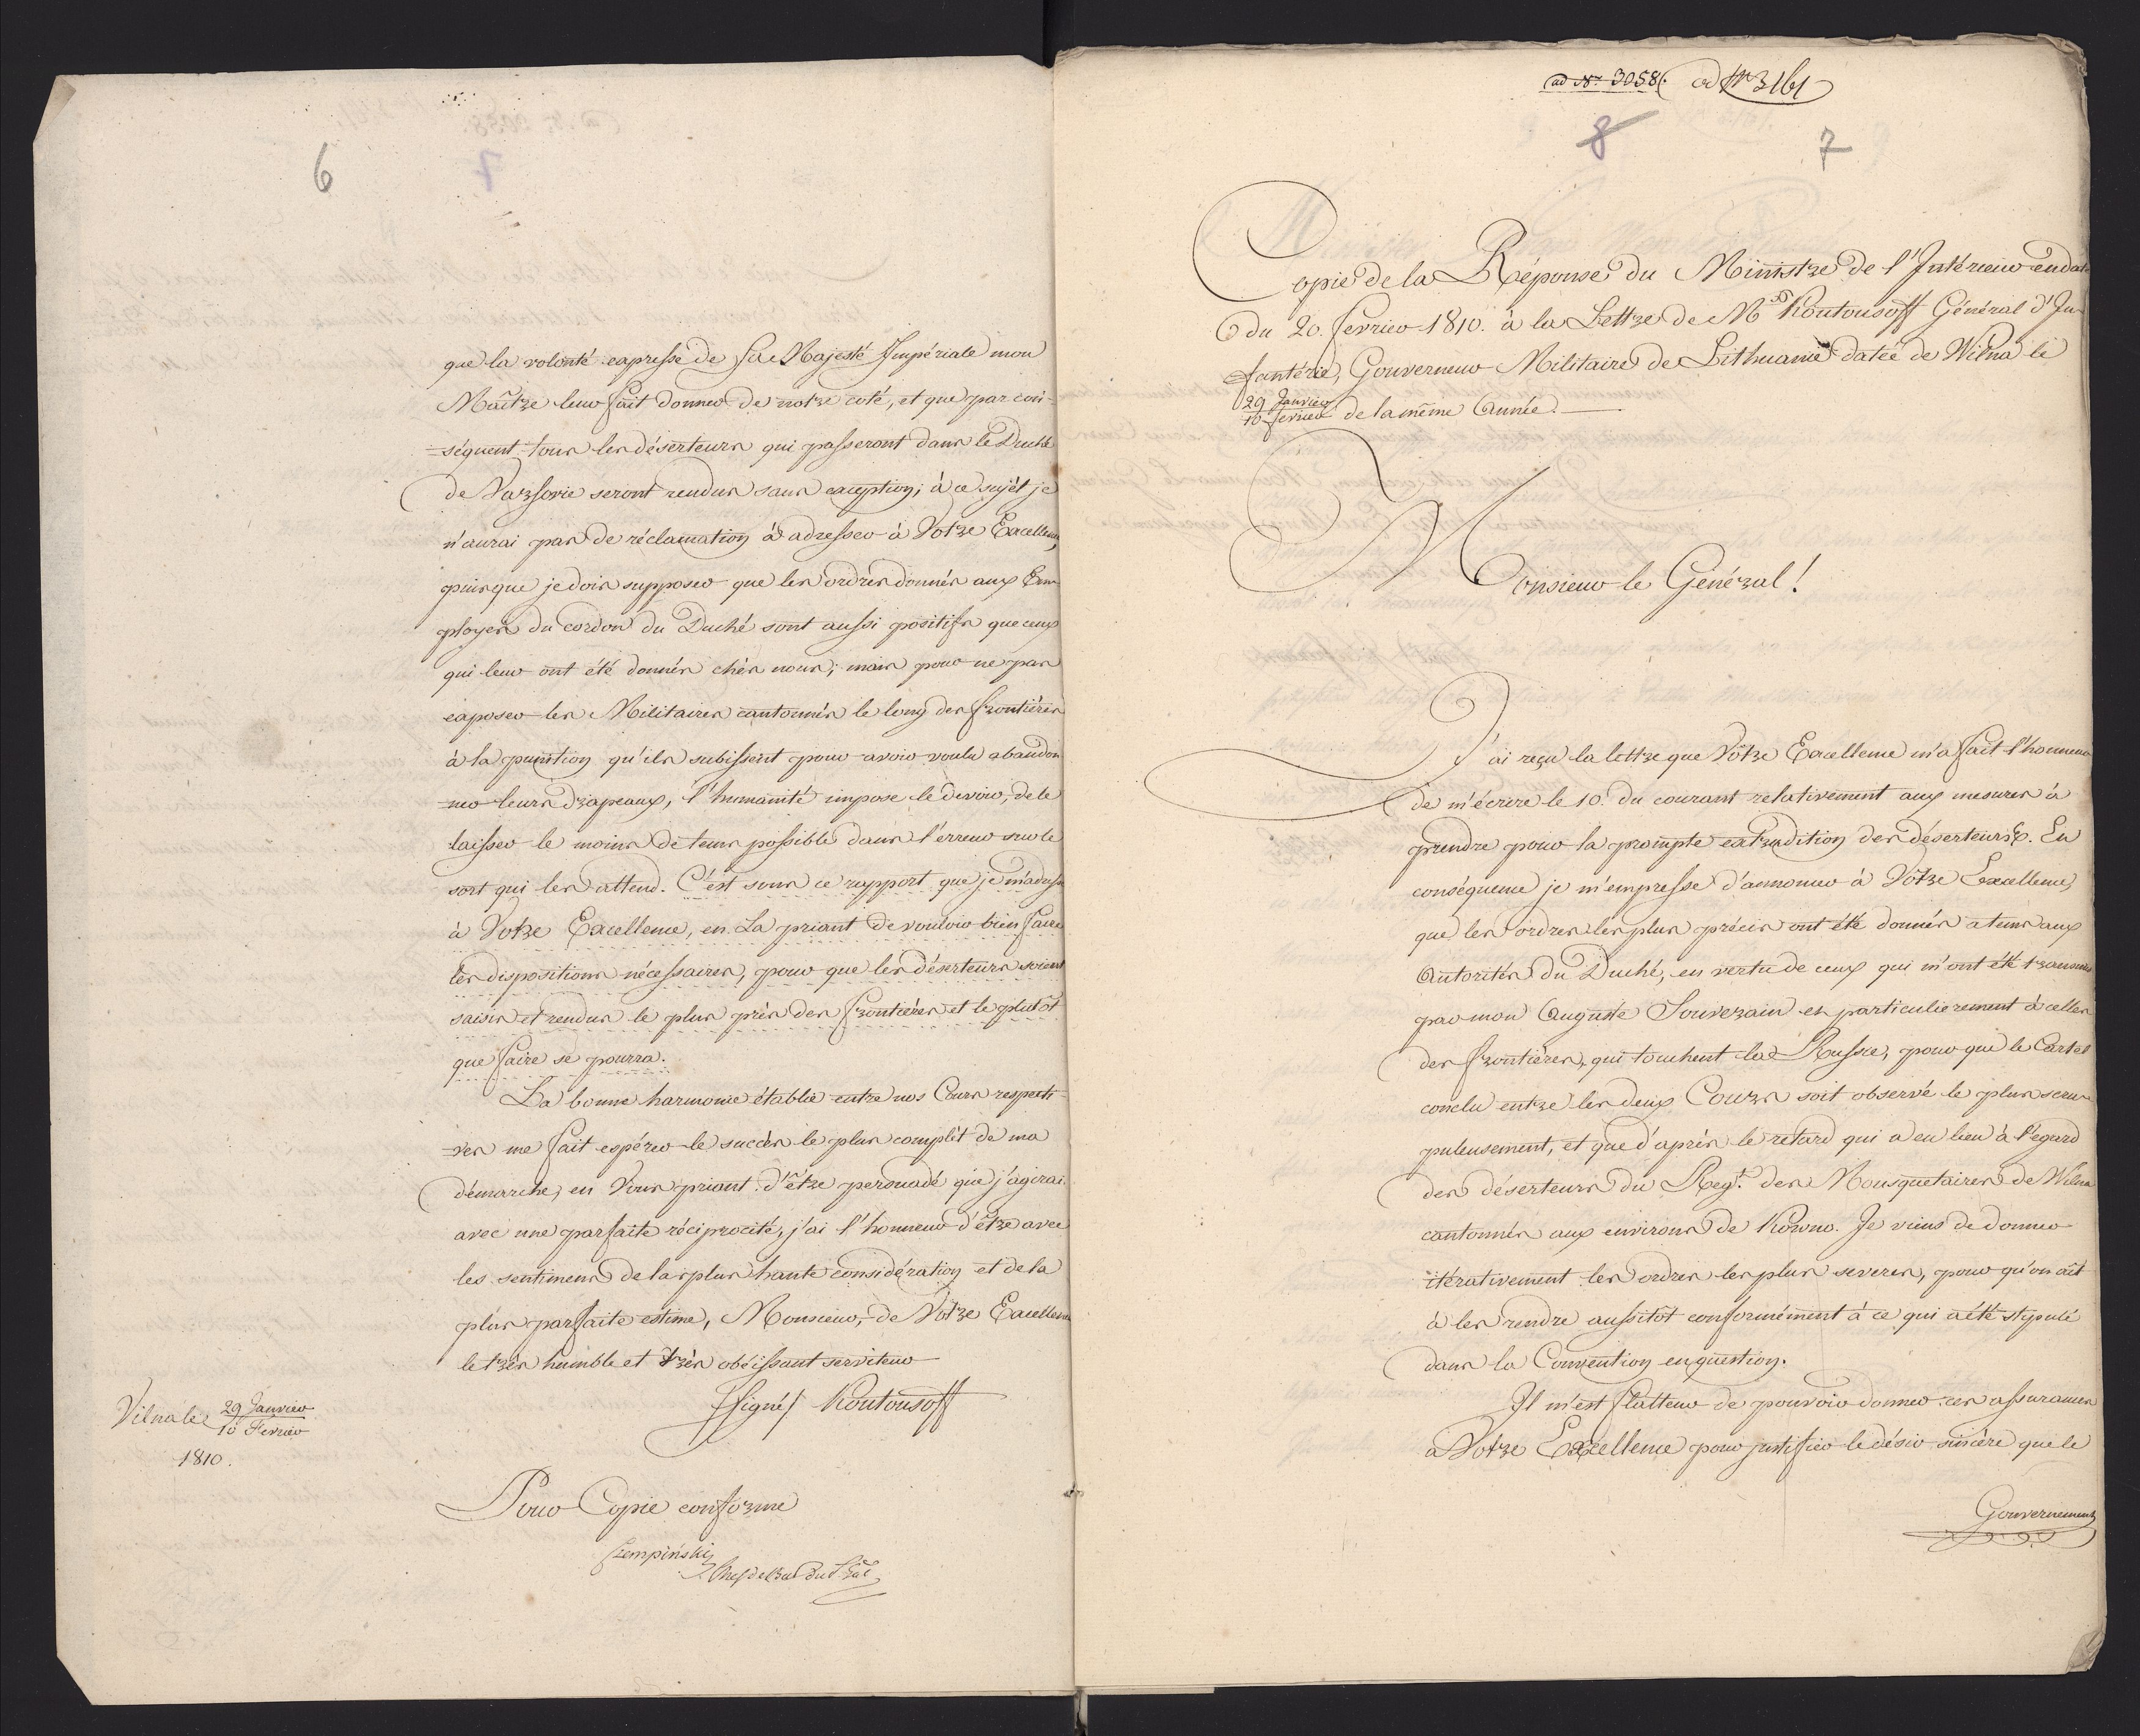 6
que la volonté expresse de Sa Majesté Impériale mon
Maître leur fait donner de notre coté, et que par con-
-séquent tous les déserteurs qui passeront dans le Duché
de Varsovie seront rendus sans exception; à ce sujèt je
n'aurai pas de réclamation à adresser à Votre Excellence,
puisque je dois supposer que les ordres donnés aux Em-
ployés du cordon du Duché sont aussi positifs que ceux
qui leur ont été donnés chès nous; mais pour ne pas
exposer les Militaires cantonnés le long des frontières
à la punition qu'ils subissent pour avoir voulu abandon
-ner leurs drapeaux, l'humanité impose le devoir, de le
laisser le moins de tems possible dans l'erreur sur le
sort qui les attend. C'est sous ce rapport que je m'adresse
à Votre Excellence, en La priant de vouloir bien faire
les dispositions nécessaires, pour que les déserteurs soient
saisis et rendus le plus près des frontières et le plutôt
que faire se pourra.
La bonne harmonie établie entre nos Cours respecti-
-ves me fait espérer le succès le plus complèt de ma
démarche, en Vous priant d'être persuadé que j'agirai
avec une parfaite réciprocité, j'ai l'honneur d'être avec
les sentimens de la plus haute considération et de la
plus parfaite estime, Monsieur, de Votre Excellence
le très humble et très obéissant serviteur
/signé/ Koutousoff
Vilna le 29 Janvier
10 Fevrier
1810.
Pour Copie conforme
Czempiński
Chef de Bur du
ad Nr 3058. ad Nr 3161
8 7
Copie de la Réponse du Ministre de l'Intérieur en date
du 20. fevrier 1810. à la Lettre de Mr Koutousoff Général d'In-
fantérie, Gouverneur Militaire de Lithuanie datée de Wilna le
29 Janvier
10 fevrier de la même Année.
Monsieur le Général!
J'ai reçu la lettre que Vôtre Excellence m'a fait l'honneur
de m'écrire le 10. du courant relativement aux mesures à
prendre pour la prompte extradition des déserteurs. En
conséquence je m'empresse d'annoncer à Vôtre Excellence,
que les ordres les plus précis ont été donnés a tems aux
Autorités du Duché, en vertu de ceux qui m'ont été transmis
par mon Auguste Souverain es particulierement à celles
des frontières, qui touchent la Russie, pour que le Cartel
conclu entre les deux Cours soit observé le plus scru-
puleusement, et que d'après le retard qui a eu lieu à l'egard
des déserteurs du Regt. des Mousquetaires de Wilna
cantonnés aux environs de Kowno. Je viens de donner
itérativement les ordres les plus severes, pour qu'on ait
à les rendre aussitôt conformément à ce qui a été stipulé
dans la Convention en question.
Il m'est flatteur de pouvoir donner ces assurances
à Votre Excellence pour justifier le désir sincère que le
Gouvernement